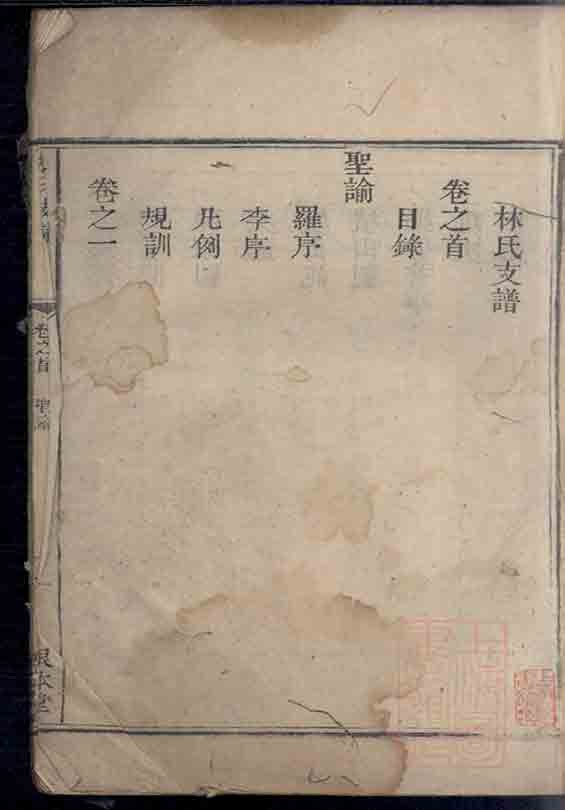 林氏支譜
卷之首
目錄
聖諭
羅序
李序
凡例
規訓
卷之一
卷之首
聖諭
一
根本堂